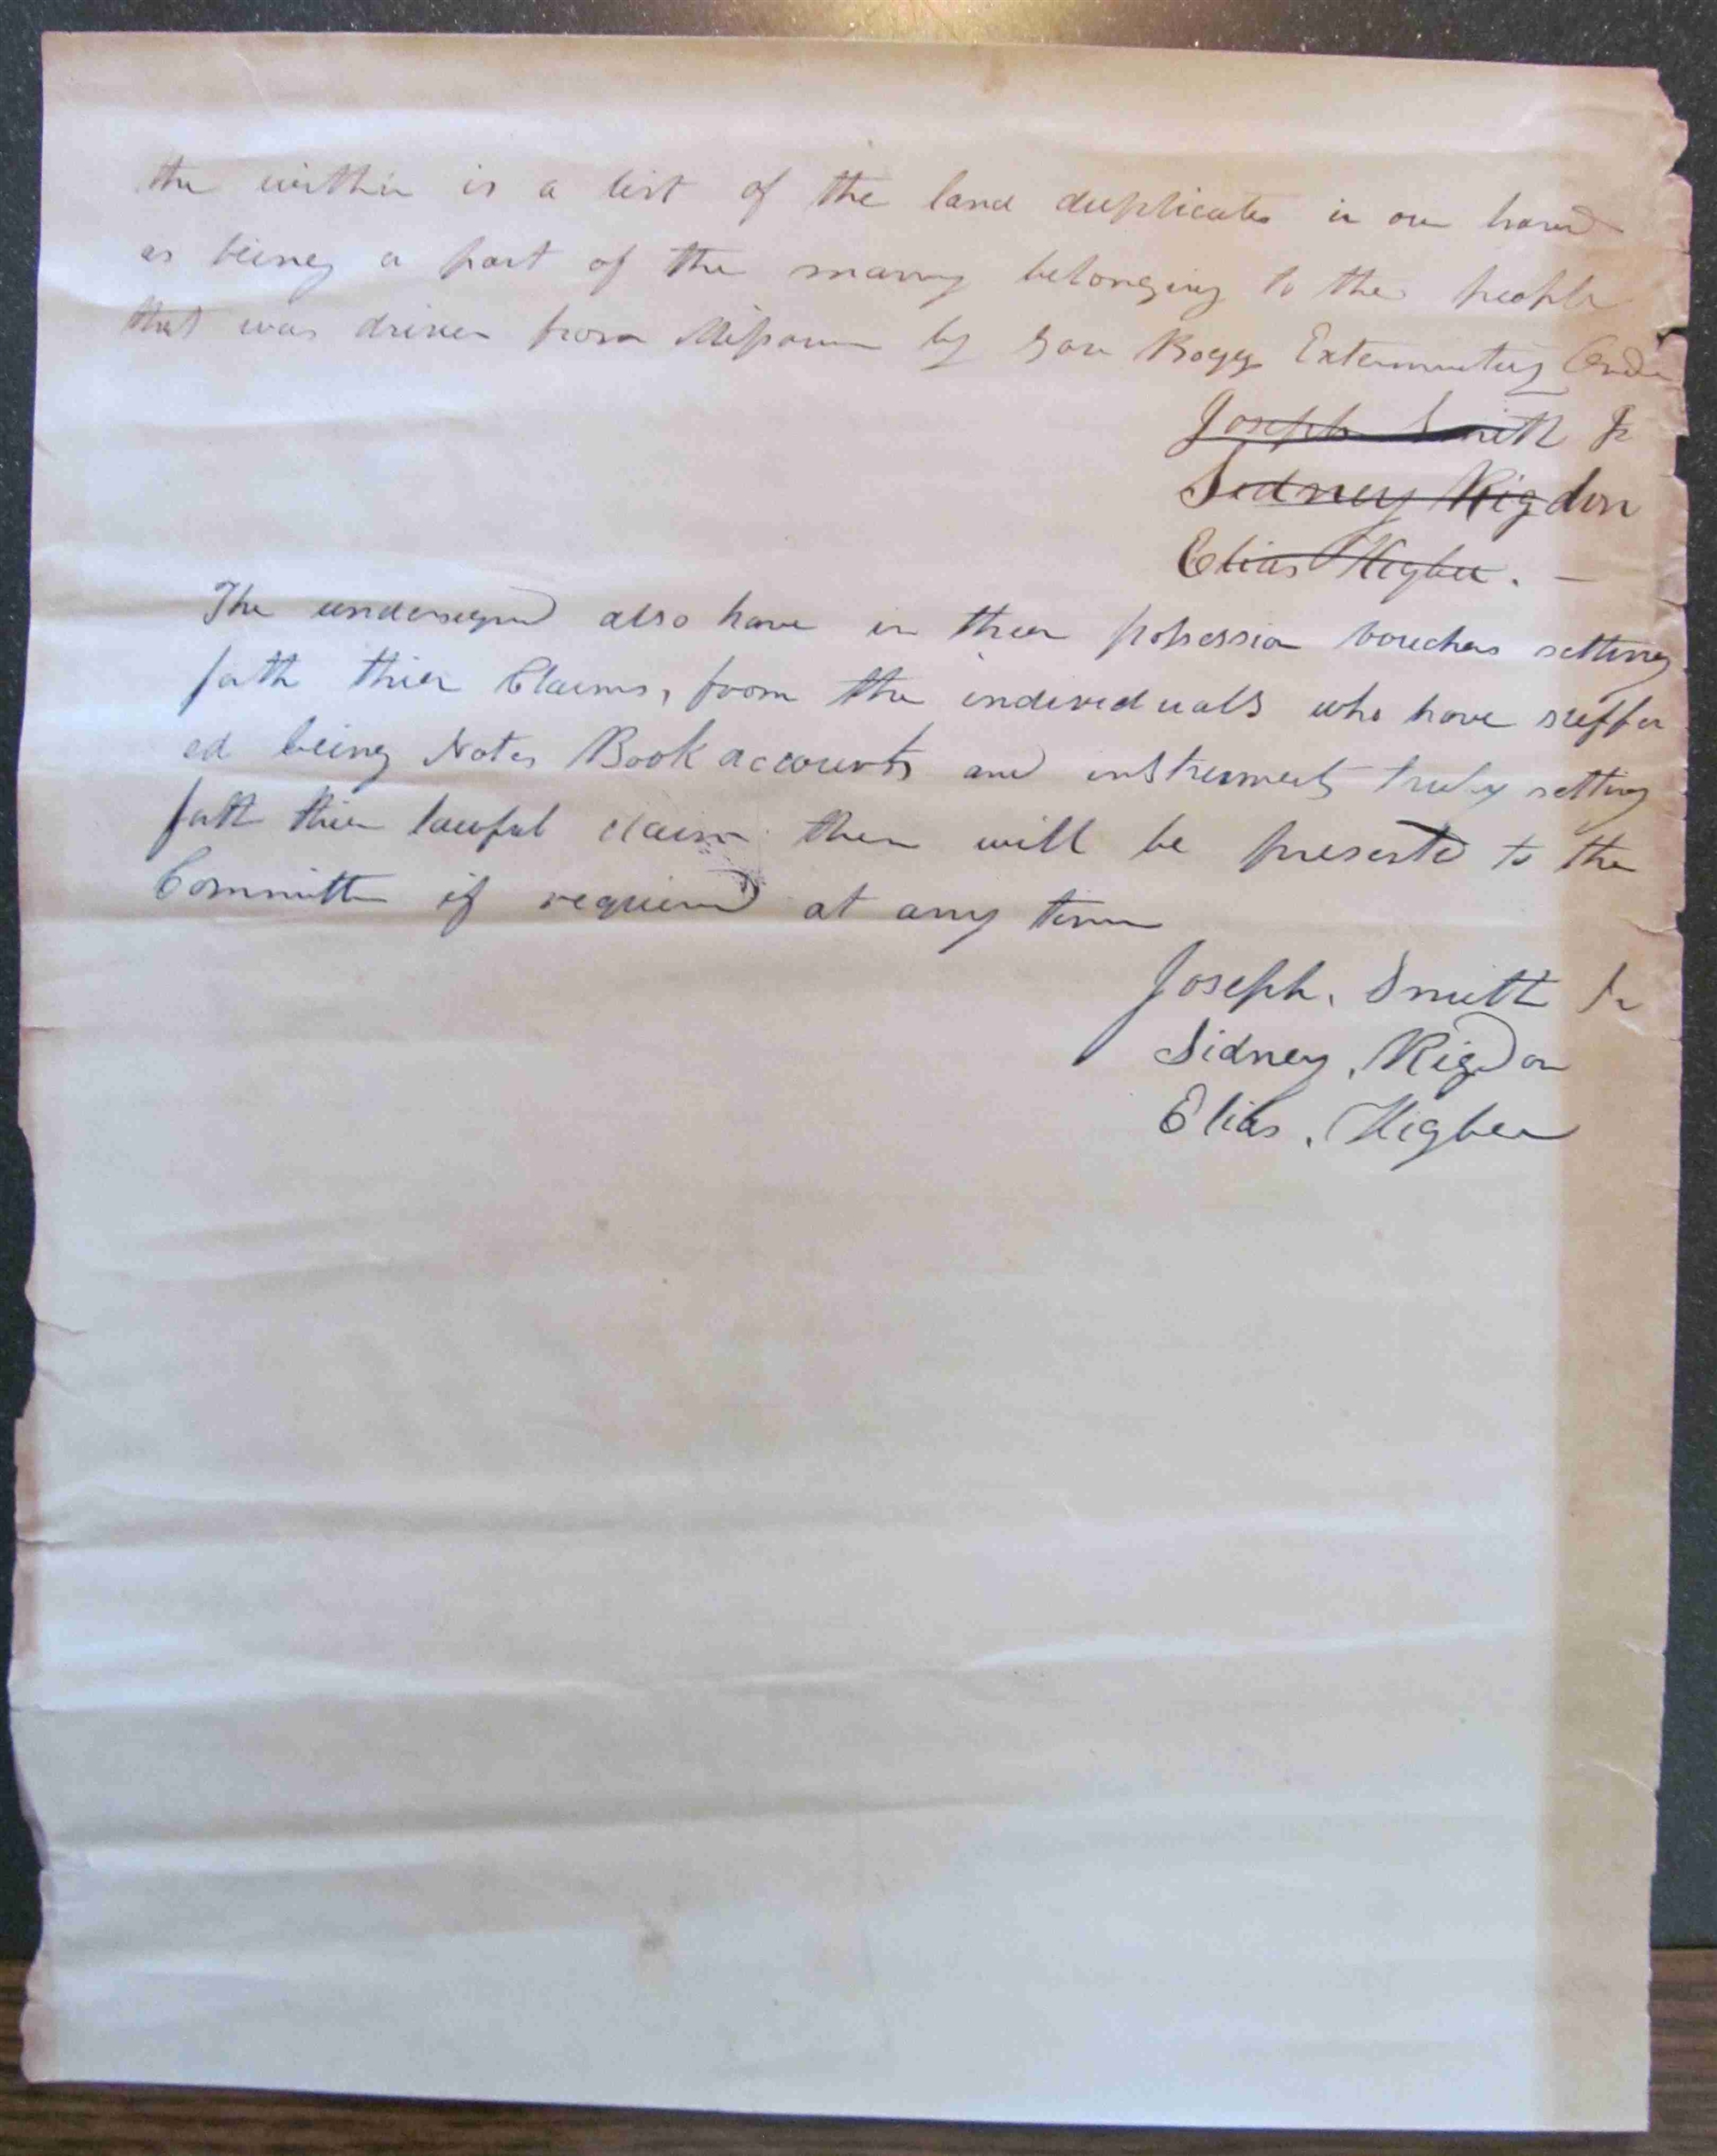 the within is a list of the land duplicates in our hand
as being a part of the many belonging to the people
that was driven from Missouri by Gov Boggs Exterminating Order
Joseph Smith Jr
Sidney Rigdon
Elias Higbee. —
The undersigned also have in thier possession vouchers setting
forth thier Claims, from the individuals who have suffer
ed being Notes Book accounts and instruments truly setting
forth thier lawful claim them will be presented to the
Committee if required at any time
Joseph. Smith Jr
Sidney. Rigdon
Elias. Higbee